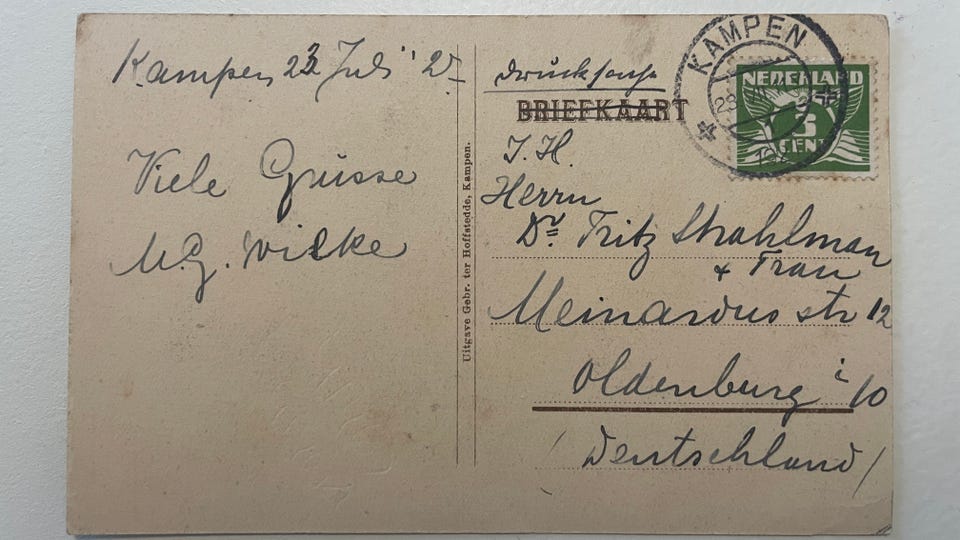 Kampen, 23 Juli
Viele Grüsse
M. G. Wilke
Uitgave Gebr. ter Hoffstedde, Kampen.
Drucksache
BRIEFKAART
Herrn
Dr. Fritz Strahlman
+ Frau
Meinardus str 12
Oldenburg i/O
(Deutschland)
KAMPEN
NEDERLAND
3
CENT